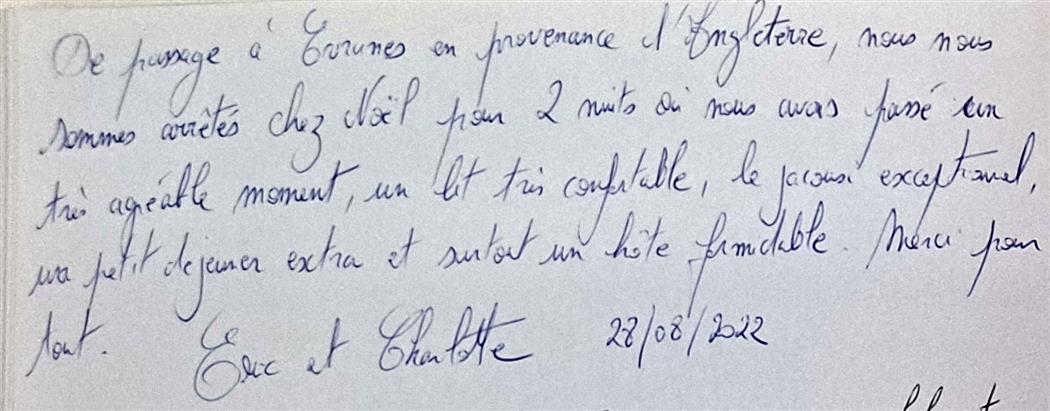 De passage à Evrunes en provenance d'Engleterre, nous nous
sommes arrêtés chez Noël pour 2 nuits où nous avons passé un
très agréable moment, un lit très confortable, le jacousi exceptionnel,
un petit dejeuner extra et surtout un hôte formidable. Merci pour
tout. Eric et Charlotte 28/08/2022